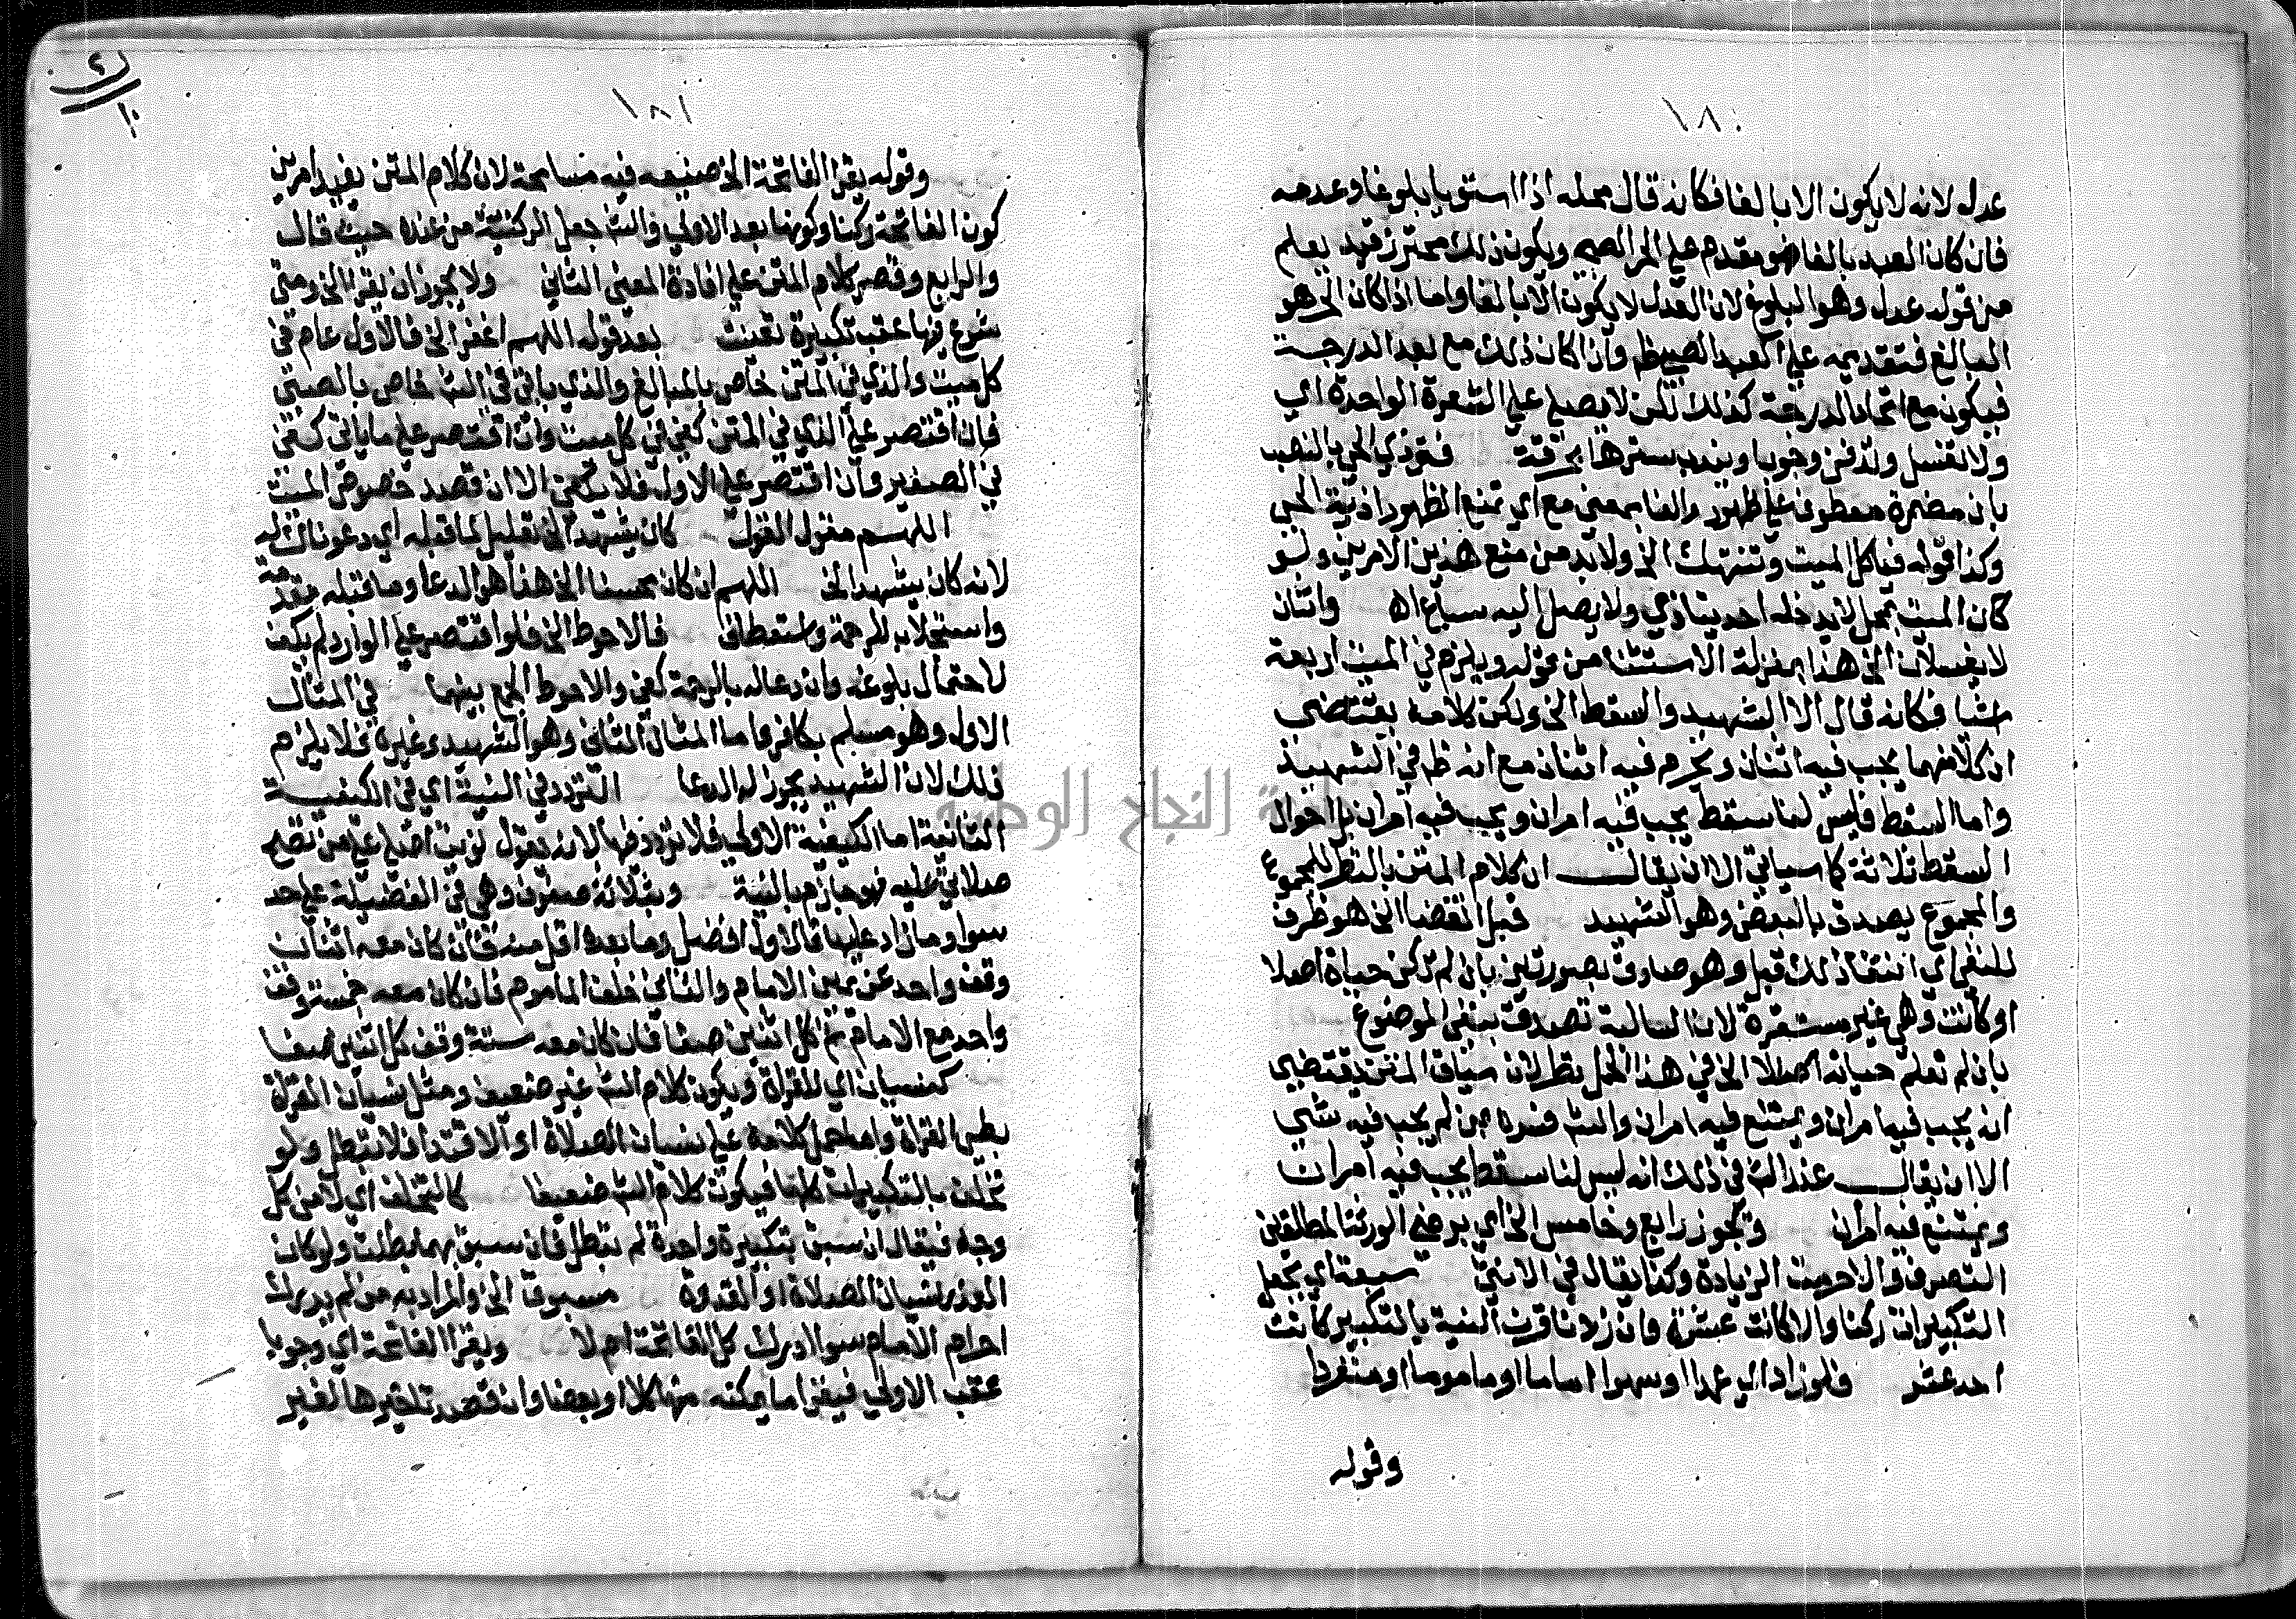 ١٨٠
عدل لانه لا يكون الا بالغا فكانه قال محله اذا استويا بلوغا وعدمه
فان كان العبد بالغا فهو مقدم على الحر الصبي ويكون ذلك محترز قيد يعلم
من قوله عدل وهو البلوغ لان العدل لا يكون الا بالغا واما اذا كان الحر هو
البالغ فتقديمه على العبد الصبي ظ وان كان ذلك مع بعد الدرجة
فيكون مع اتحاد الدرجة كذلك لكن لا يصلى على الشعرة الواحدة اي
ولا تغسل وتدفن وجوبا ويندب سترها بخرقة فتوذي الحي بالنصب
بان مضمرة معطوف على ظهور والفا بمعنى مع اي تمنع الظهور اذية الحي
وكذا قوله فياكل الميت وتنتهك الخ ولا بد من منع هذين الامرين ولو
كان الميت بمحل لا يدخله احد يتاذى ولا يصل اليه سباع اه واثنان
لا يغسلان الخ هذا بمنزلة الاستثنا من قوله ويلزم في الميت اربعة
اشيا فكانه قال الا الشهيد والسقط الخ ولكن كلامه يقتضي
ان كلا منهما يجب فيه اثنان ويحرم فيه اثنان مع انه ظ في الشهيد
واما السقط فليس لنا سقط يجب فيه امران ويجب فيه امران بل احوال
السقط ثلاثة كما سياتي الا ان يقال ان كلام المتن بالنظر للمجموع
والمجموع يصدق بالبعض وهو الشهيد قبل انقضا الخ هو ظرف
للنفي اي انتفا ذلك قبل وهو صادق بصورتين بان لم تكن حياة اصلا
او كانت وهي غير مستقرة لان السالبة تصدق بنفي الموضوع
بان لم تعلم حياته اصلا الخ في هذا الحل نظر لان سياق المتن يقتضي
انه يجب فيه امران ويمتنع فيه امران والش فسره بمن لم يجب فيه شي
الا ان يقال عذر الش في ذلك انه ليس لنا سقط يجب فيه امران
ويمتنع فيه امران وتجوز رابع وخامس الخ اي برضى الورثة المطلقين
التصرف والا حرمت الزيادة وكذا يقال في الاثنين سبعة اي بجعل
التكبيرات ركنا والا كانت عشرة وان زدنا قرن النية بالتكبير كانت
احد عشر فلو زاد اي عمدا او سهوا اماما او ماموما او منفردا
وقوله
١٨١
وقوله يقرا الفاتحة الخ صنيعه فيه مسامحة لان كلام المتن يفيد امرين
كون الفاتحة ركنا وكونها بعد الاولى والش جعل الركنية من عنده حيث قال
والرابع وقصر كلام المتن على افادة المعنى الثاني ولا يجوز ان يقرا الخ ومتى
شرع فيها عقب تكبيرة تعينت بعد قوله اللهم اغفر الخ فالاول عام في
كل ميت والذي في المتن خاص بالبالغ والذي ياتي في الش خاص بالصبي
فان اقتصر على الذي في المتن كفى في كل ميت وان اقتصر على ما ياتي كفى
في الصغير وان اقتصر على الاول فلا يكفي الا ان قصد خصوص الميت
اللهم مقول القول كان يشهد الخ تعليل لما قبله اي دعوناك له
لانه كان يشهد الخ اللهم ان كان محسنا الخ هذا هو الدعا وما قبله مقدمة
واستجلاب للرحمة واستعطاف فالاحوط الخ فلو اقتصر على الوارد لم يكف
لاحتمال بلوغه وان دعا له بالرحمة كفى والاحوط الجمع بينهما في المثال
الاول وهو مسلم بكافر واما المثال الثاني وهو الشهيد وغيره فلا يلزم
ذلك لان الشهيد يجوز له الدعا التردد في النية اي في الكيفية
الثانية اما الكيفية الاولى فلا تردد فيها لانه يقول نويت اصلي على من تصح
صلاتي عليه فهو جازم بالنية وبثلاثة صفوف وهي في الفضيلة على حد
سوا وما زاد عليها فالاول افضل وما بعده اقل منه فان كان معه اثنان
وقف واحد عن يمين الامام والثاني خلف الماموم فان كان معه خمسة وقف
واحد مع الامام ثم كل اثنين صفا فان كان معه ستة وقف كل اثنين صفا
كنسيان اي للقراة ويكون كلام الش غير ضعيف ومثل نسيان القراة
بطي القراة واما حمل كلامه على نسيان الصلاة او الاقتدا فلا تبطل ولو
تخلف بالتكبيرات كلها فيكون كلام الش ضعيفا كالتخلف اي لا من كل
وجه فيقال ان سبق بتكبيرة واحدة لم تبطل فان سبق بهما بطلت ولو كان
العذر نسيان الصلاة او القدوة مسبوق الخ والمراد به من لم يدرك
احرام الامام سوا ادرك كل الفاتحة ام لا ويقرا الفاتحة اي وجوبا
عقب الاولى فيقرا ما يمكنه منها كلا او بعضا وان قصد تاخيرها لغير
جامعة النجاح الوطنية